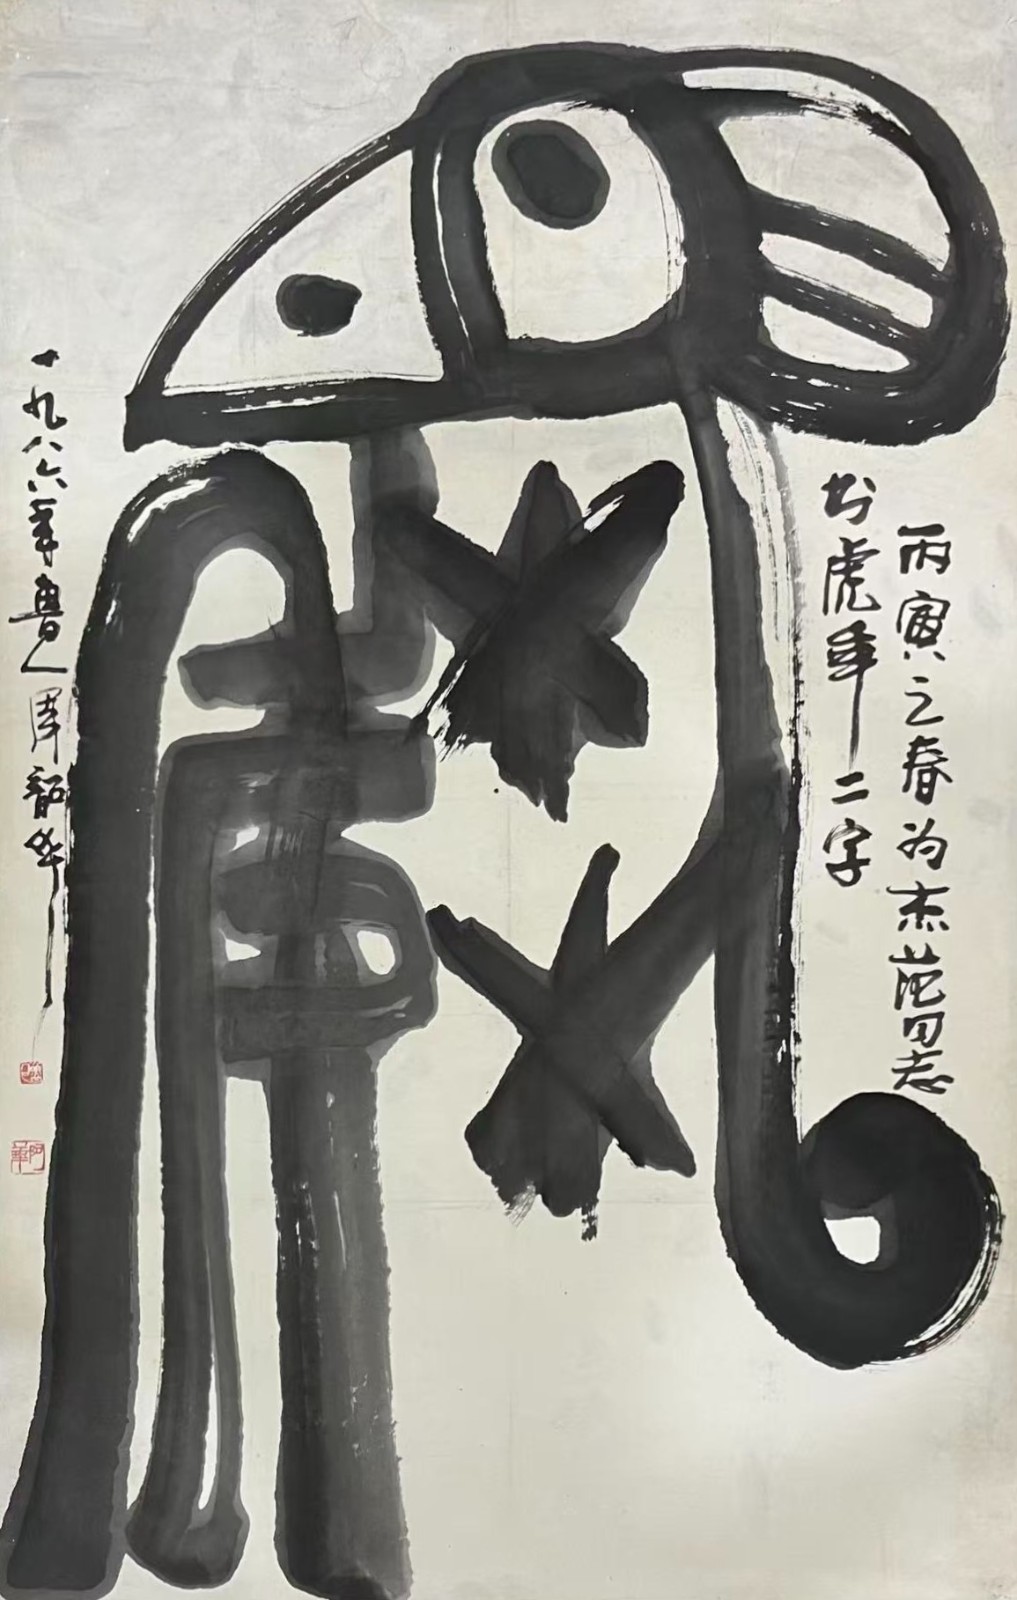 丙寅之春为杰范同志
书虎年二字
一九八六年鲁人周韶华
阿華